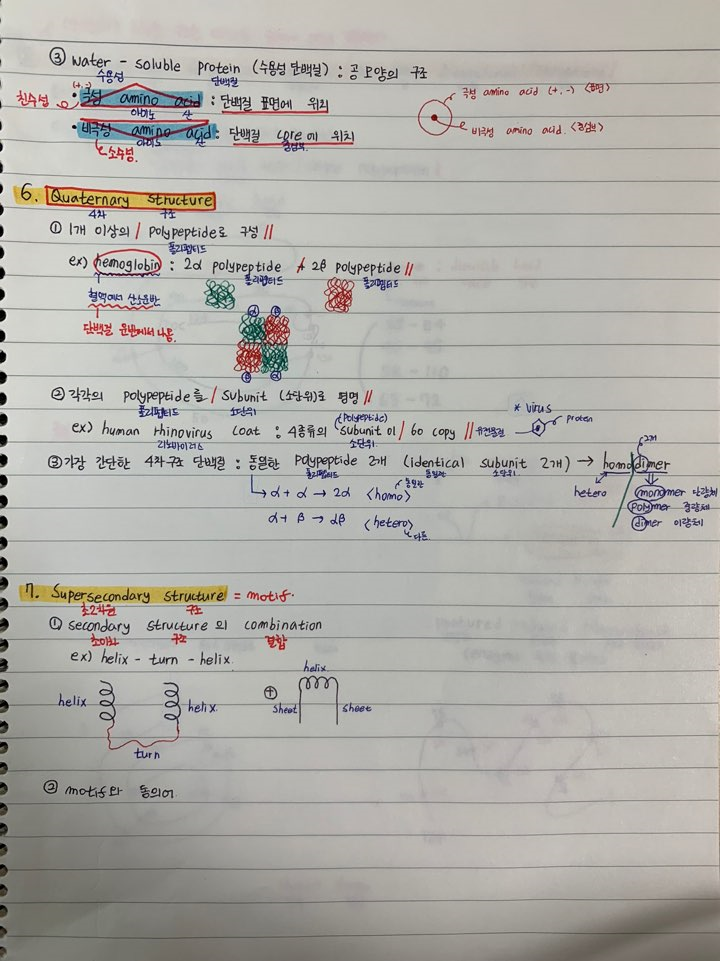 ③ water - soluble protein (수용성 단백질) : 공 모양의 구조
수용성 단백질
친수성 (+, -) • 극성 amino acid : 단백질 표면에 위치
아미노 산
• 비극성 amino acid : 단백질 core에 위치
아미노 산 중심부.
소수성.
극성 amino acid (+, -) <표면>
비극성 amino acid. <중심부>
6. Quaternary structure
4차 구조
① 1개 이상의 / polypeptide로 구성 //
폴리펩티드
ex) hemoglobin : 2α polypeptide + 2β polypeptide //
폴리펩티드 폴리펩티드
혈액에서 산소운반
단백질 운반에서 나옴.
α β
β α
② 각각의 polypeptide를 / subunit (소단위)로 명명 //
폴리펩티드 소단위
ex) human rhinovirus coat : 4종류의 subunit 이 / 60 copy //
(polypeptide)
리노바이러스 소단위
* virus
유전물질 protein
③ 가장 간단한 4차 구조 단백질 : 동일한 polypeptide 2개 (identical subunit 2개) → homodimer
폴리펩티드 동일한 소단위
2개
↳ α + α → 2α <homo>
동일한
α + β → αβ <hetero>
다른.
hetero
monomer 단량체
polymer 중량체
dimer 이량체
7. Supersecondary structure = motif.
초2차원 구조
① secondary structure 의 combination
구조 결합
ex) helix - turn - helix.
helix helix
turn
⊕ helix.
sheet sheet
② motif와 동의어.